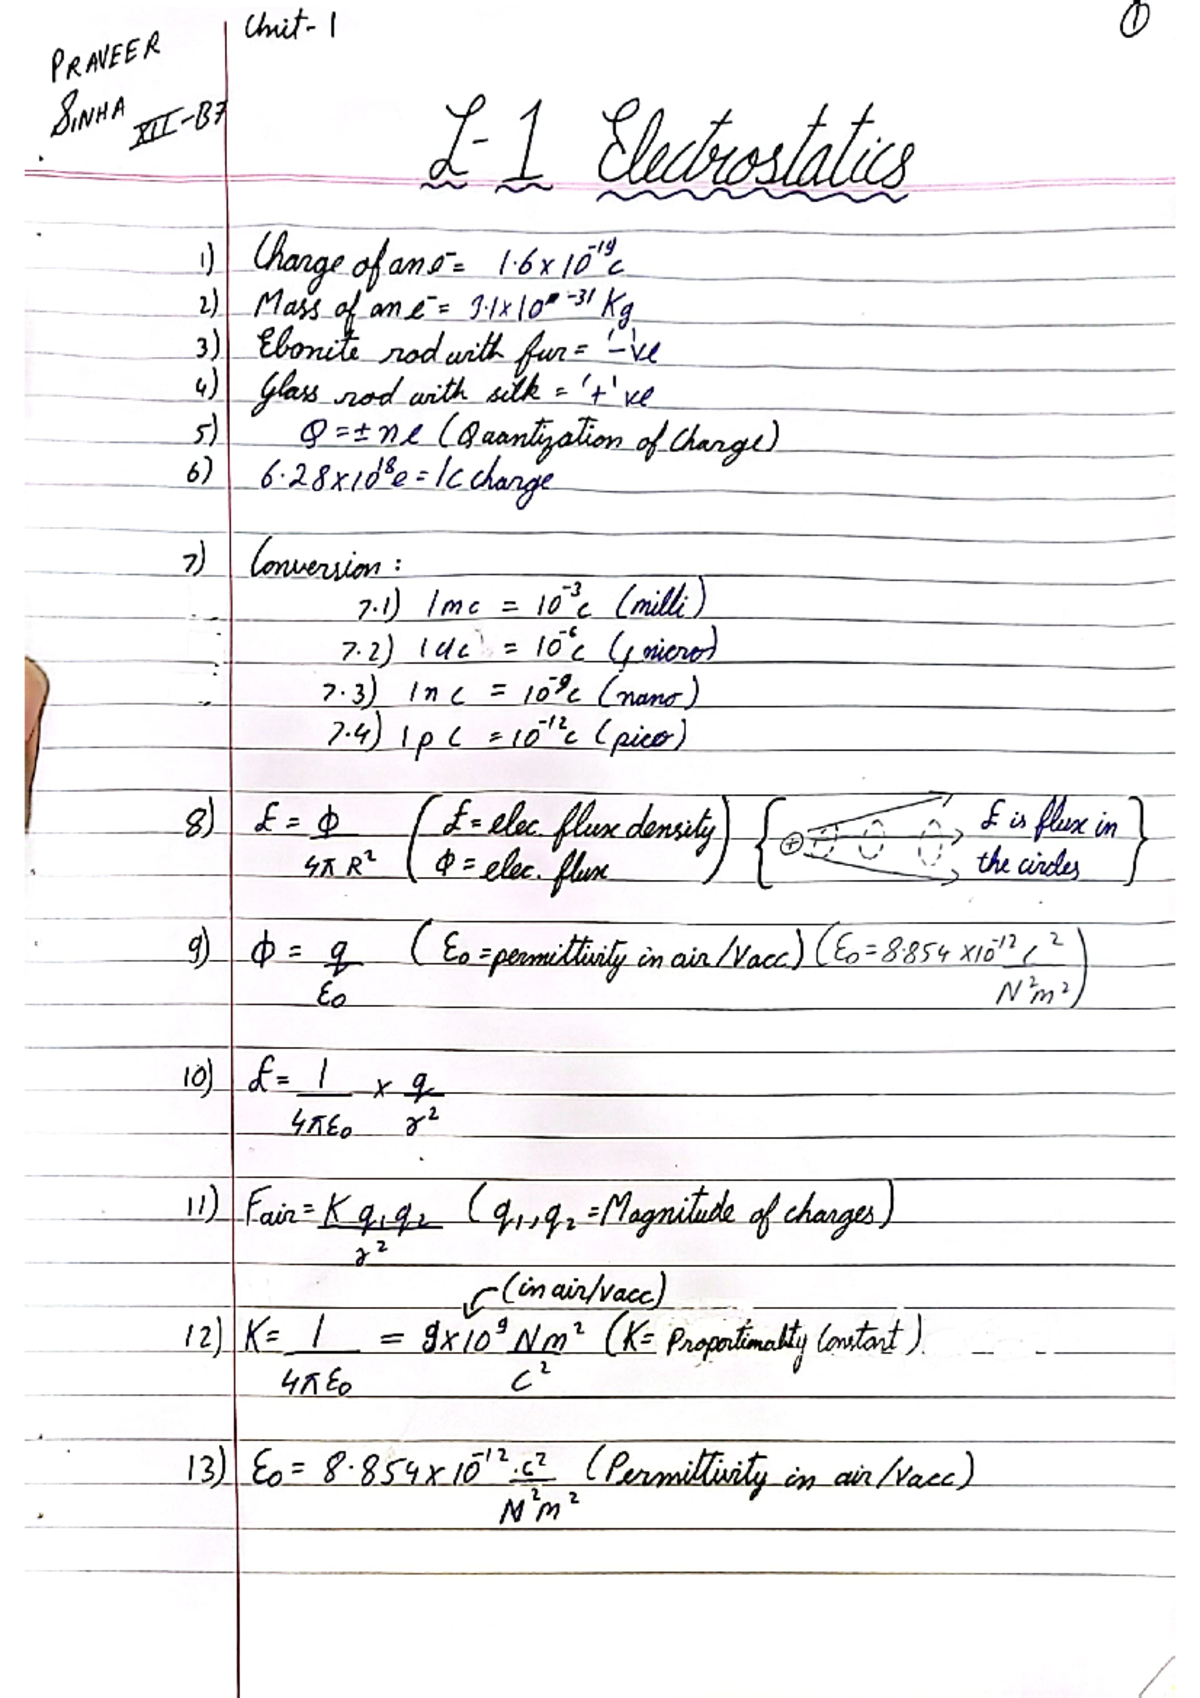 Unit-1
①
PRAVEER
SINHA XII-B7
L-1 Electrostatics
1) Charge of an e⁻= 1.6x10⁻¹⁹c
2) Mass of an e⁻= 9.1x10⁻³¹ Kg
3) Ebonite rod with fur = '-'ve
4) Glass rod with silk = '+'ve
5) Q=±ne (Quantization of Charge)
6) 6.28x10¹⁸e=1c charge
7) Conversion :
7.1) 1mc = 10⁻³c (milli)
7.2) 1μc = 10⁻⁶c (micro)
7.3) 1nc = 10⁻⁹c (nano)
7.4) 1pc = 10⁻¹²c (pico)
8) E = Φ/4πR² (E=elec. flux density Φ=elec. flux) {+ E is flux in the circles}
9) Φ = q/ε₀ (ε₀=permittivity in air/vacc) (ε₀=8.854 x10⁻¹² c²/N²m²)
10) E= 1/4πε₀ x q/r²
11) Fair= K q₁q₂/r² (q₁,q₂=Magnitude of charges)
(in air/vacc)
12) K= 1/4πε₀ = 9x10⁹ Nm²/c² (K= Proportionality Constant).
13) ε₀= 8.854x10⁻¹².c²/N²m² (Permittivity in air/vacc)